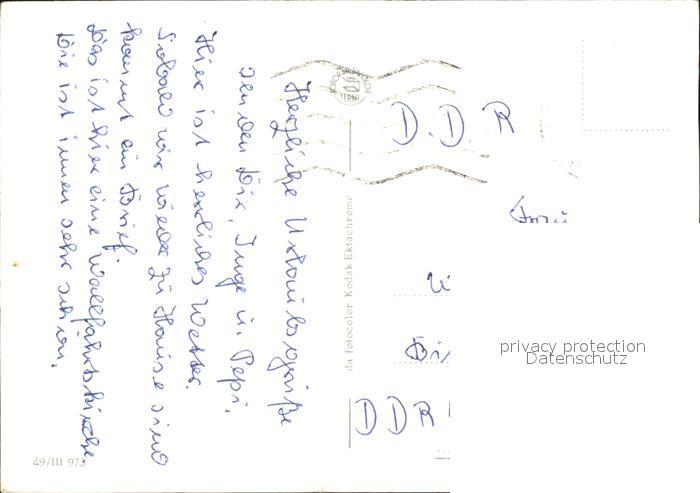 Herzliche Urlaubsgrüße
senden Dir, Inge u. Pepi.
Hier ist herrliches Wetter.
Sobald wir wieder zu Hause sind
kommt ein Brief.
Das ist hier eine Wallfahrtskirche
Die ist innen sehr schön.
D.D.R
Frau
DDR
da fotocolor Kodak Ektachrome
49/III 973
privacy protection
Datenschutz